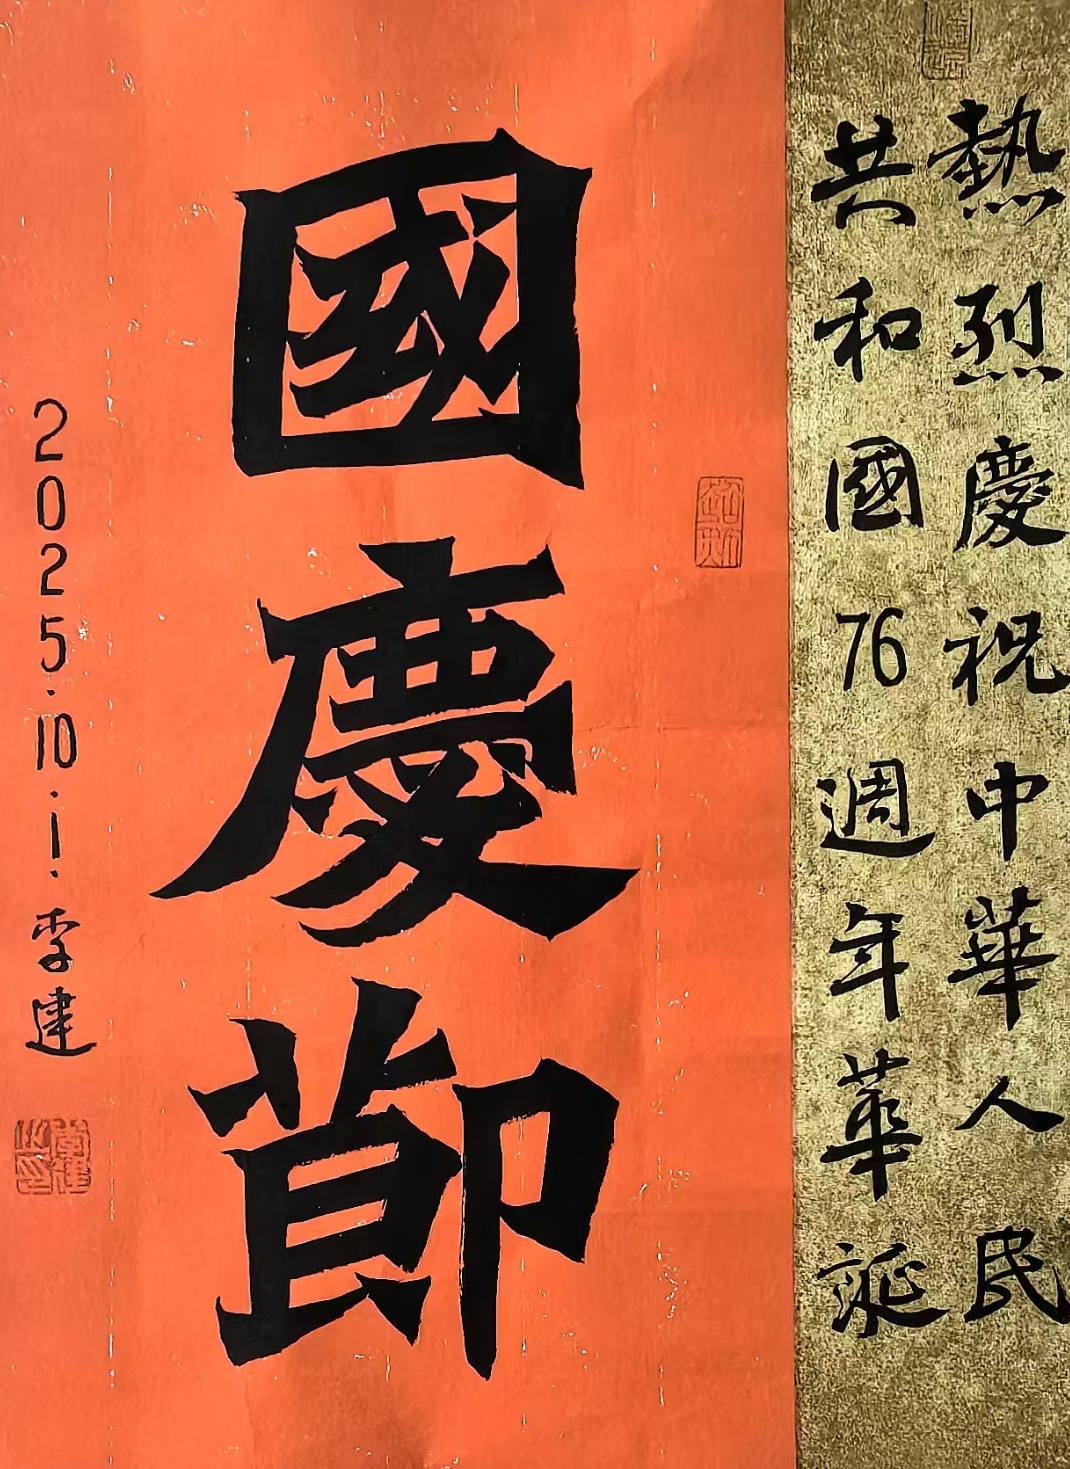 熱烈慶祝中華人民
共和國76週年華誕
國慶節
2025.10.1.李建